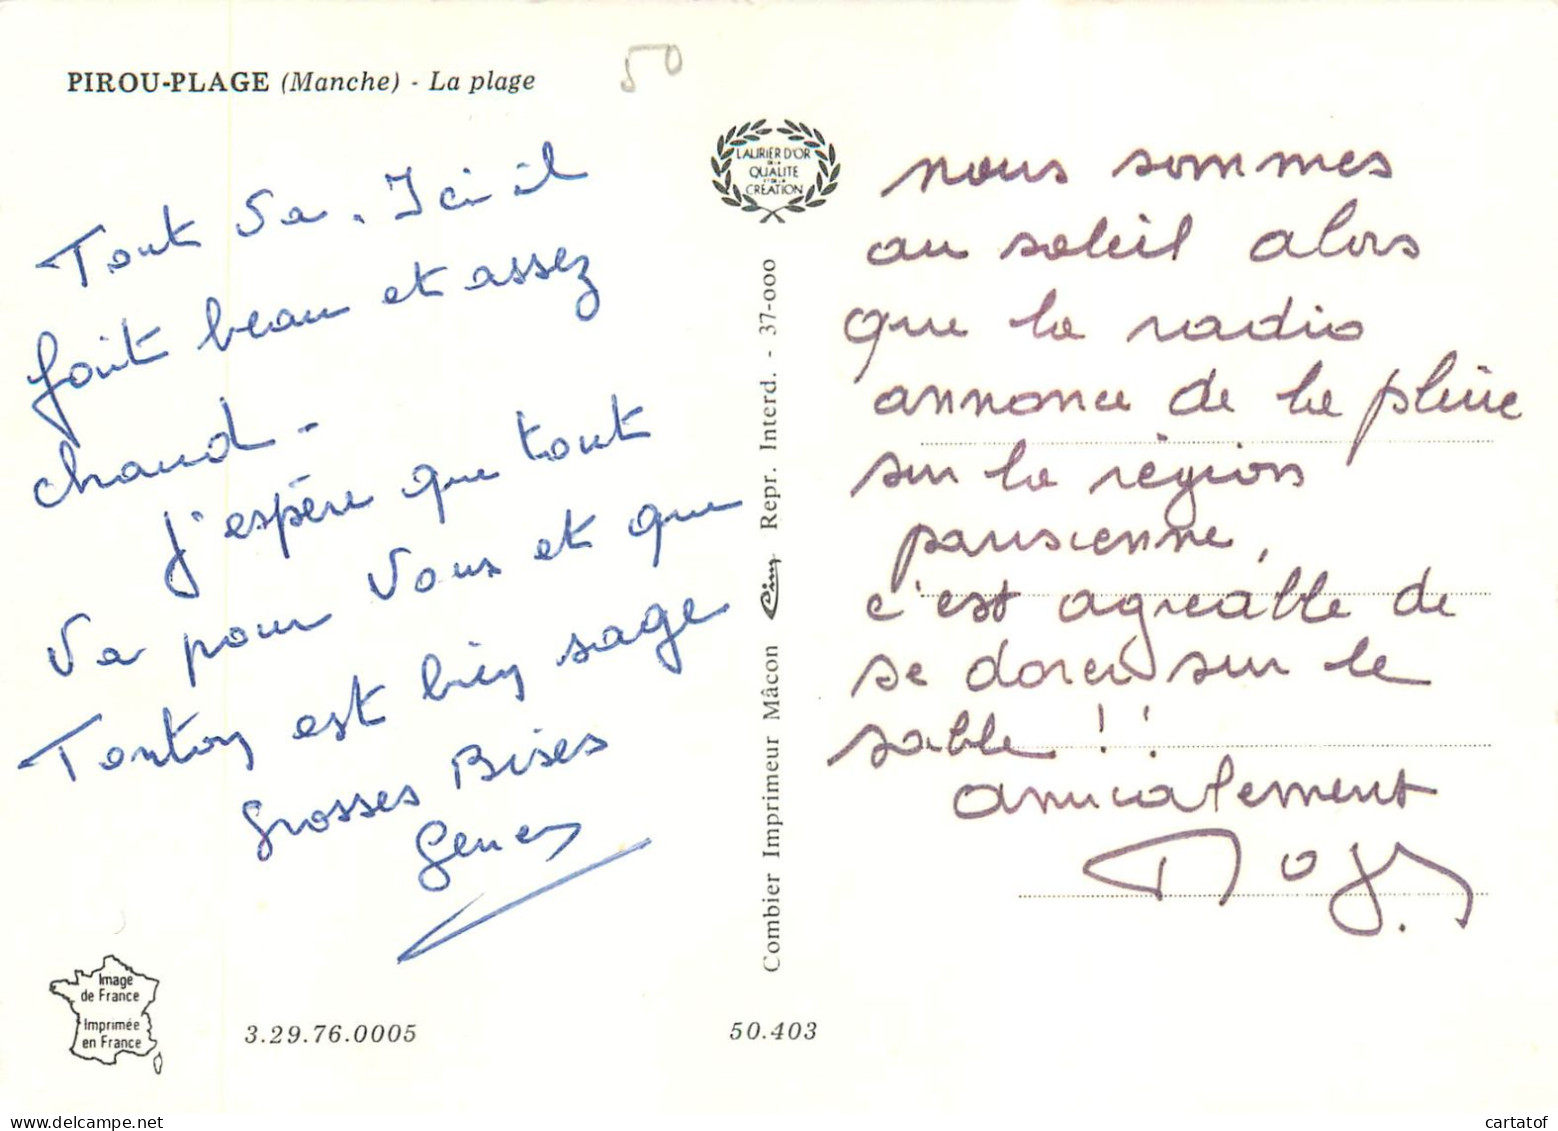 PIROU-PLAGE (Manche) - La plage
50
Tout va. Ici il
fait beau et assez
chaud -
J'espère que tout
va pour vous et que
Tonton est bien sage
Grosses Bises
LAURIER D'OR
DE LA
QUALITE
ET DE LA
CREATION
Combier Imprimeur Mâcon Cim Repr. Interd. - 37-000
nous sommes
au soleil alors
que la radio
annonce de la pluie
sur la région
parisienne,
c'est agréable de
se dorer sur le
sable !!
amicalement
Image
de France
Imprimée
en France
3.29.76.0005
50.403
cartatof